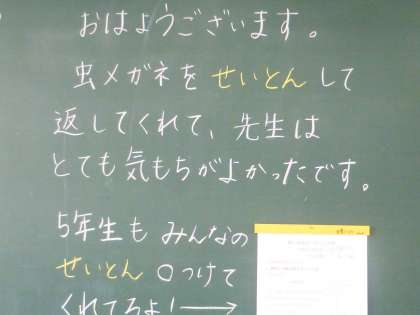 おはようございます。
虫メガネを せいとん して
返してくれて、先生は
とても気もちがよかったです。
5年生も みんなの
せいとん ○つけて
くれてるよ!→